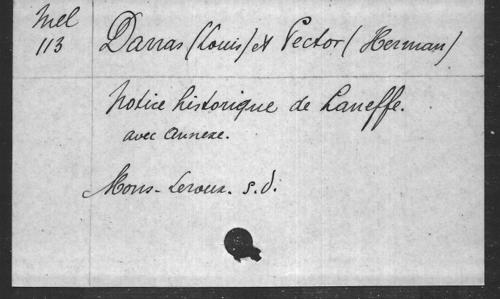 Mel
113
Darras (Louis) et Pector (Herman)
Notice historique de Laneffe.
avec annexe.
Mons - Leroux. s.d.